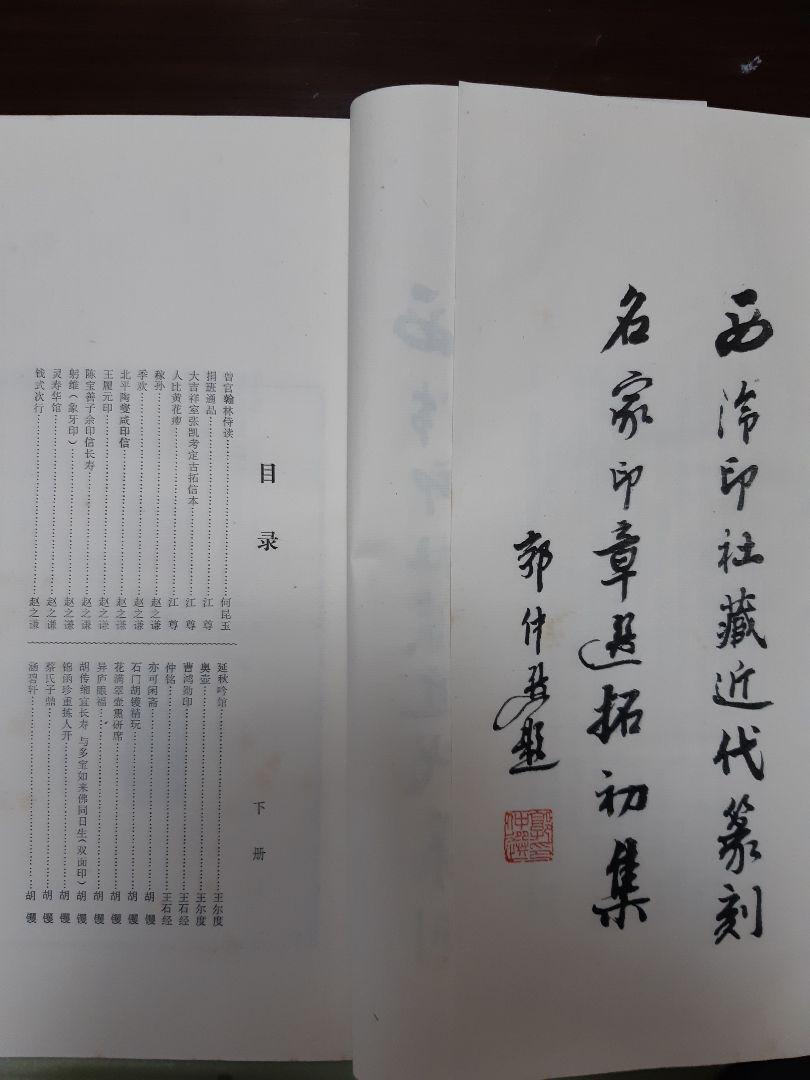 西泠印社藏近代篆刻
名家印章选拓初集
郭仲选题
目录
下册
曾官翰林侍读 何昆玉
捐班通品 江尊
大吉祥室张凯考定古拓信本 江尊
人比黄花瘦 江尊
稼孙 赵之谦
季欢 赵之谦
北平陶燮咸印信 赵之谦
王履元印 赵之谦
陈宝善子余印信长寿 赵之谦
躬维（象牙印） 赵之谦
灵寿华馆 赵之谦
钱式次行 赵之谦
延秋吟馆 王尔度
奥壶 王尔度
曹鸿勋印 王石经
仲铭 王石经
亦可闲斋 胡䦆
石门胡䦆精玩 胡䦆
花满翠壶熏研席 胡䦆
异庐眼福 胡䦆
胡传缃宜长寿 与多宝如来佛同日生（双面印） 胡䦆
锦函珍重拣人开 胡䦆
蔡氏子鼎 胡䦆
涵碧轩 胡䦆